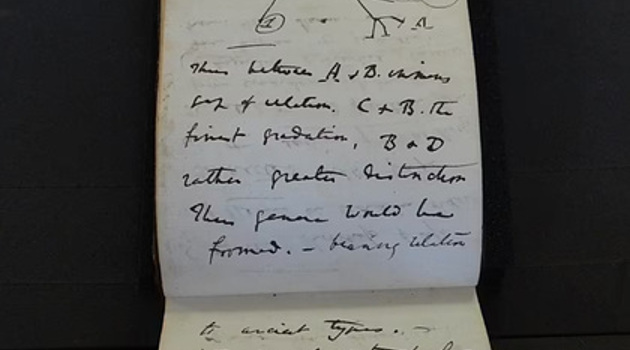 ① A
Thus between A & B. immens
gap of relation. C & B. the
finest gradation, B & D
rather greater distinction
Thus genera would be
formed. — bearing relation
to ancient types. —